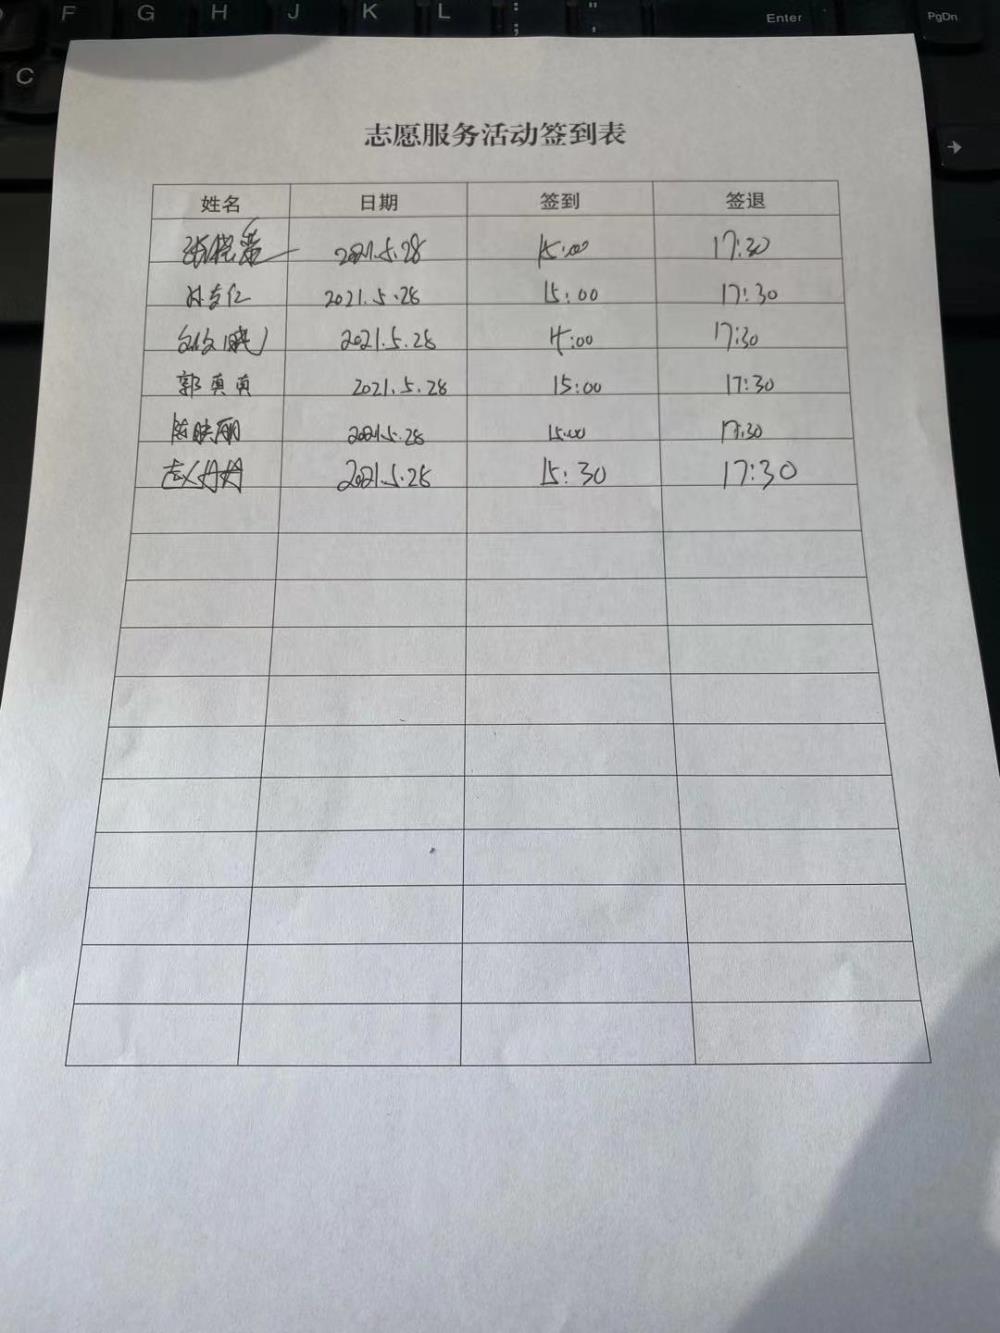 F G H J K L : ; " ' Enter PgDn
C
→
志愿服务活动签到表
姓名 日期 签到 签退
张晓 2021.5.28 15:00 17:30
2021.5.28 15:00 17:30
2021.5.28 15:00 17:30
郭真真 2021.5.28 15:00 17:30
陈映丽 2021.5.28 15:00 17:30
赵丹丹 2021.5.28 15:30 17:30